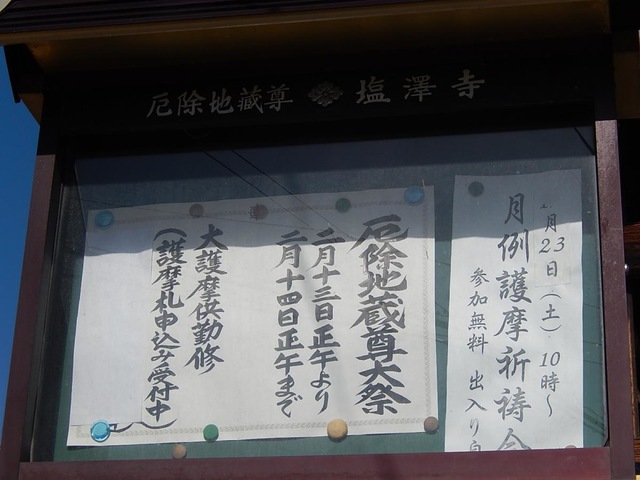 厄除地蔵尊 塩澤寺
二月23日（土） 10時～
月例護摩祈祷会
参加無料 出入り自
厄除地蔵尊大祭
二月十三日正午より
二月十四日正午まで
大護摩供勤修
（護摩札申込み受付中）